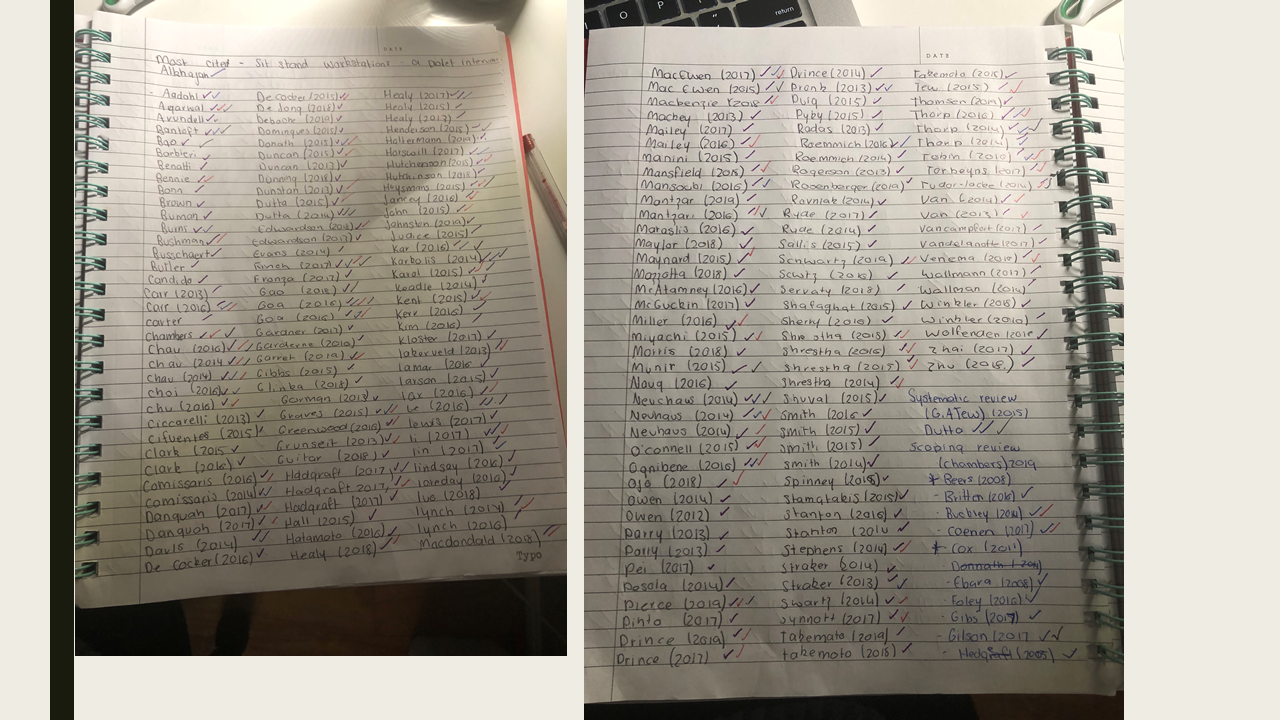 DATE
Most cited - Sit stand workstations - a pilot interven
Alkhajah
- Aadahl
Agarwal
Arundell
Bantoft
Bao
Barbieri
Benatti
Bennie
Bonn
Brown
Buman
Burns
Bushman
Busschaert
Butler
Candido
Carr (2013)
Carr (2016)
carter
Chambers
Chau (2016)
Chau (2014
Chau (2014)
Choi (2016)
Chu (2016)
Ciccarelli (2013)
Cifuentes (2015)
Clark (2015
Clark (2016)
Comissaris (2016)
Comissaris (2014)
Danquah (2017)
Danquah (2017)
Davis (2014)
De Cocker (2016)
De cocker (2015)
De Jong (2018)
Debache (2019)
Domingues (2015)
Donath (2015)
Duncan (2015)
Duncan (2013)
Dunning (2018)
Dunstan (2013)
Dutta (2015)
Dutta (2014)
Edwardson (2018)
Edwardson (2017)
Evans (2014)
Finch (2017)
Franza (2017)
Gao (2018)
Goa (2016)
Goa (2016)
Gardner (2017)
Garderne (2019)
Garret (2019)
Gibbs (2015)
Glinka (2018)
Gorman (2013)
Graves (2015)
Greenwood (2016)
Grunseit (2013)
Guitar (2018)
Hadgraft (2017)
Hadgraft 2017
Hadgraft (2017)
Hall (2015)
Hatamoto (2016)
Healy (2018)
Healy (2017)
Healy (2015)
Healy (2013)
Henderson (2015)
Hallermann (2019)
Horswill (2017)
Hutcheason (2018)
Hutchinson (2018)
Heysmans (2015)
Jancey (2016)
John (2015)
Johnston (2019)
Judice (2015)
Kar (2016)
Karbolis (2014)
Karol (2015)
Keadle (2014)
Kent (2015)
Kere (2016)
Kim (2016)
Kloster (2017)
lakerveld (2013)
lamar (2016
larson (2015)
lax (2016)
le (2016)
lewis (2017)
li (2017)
lin (2017)
lindsay (2016)
loreday (2016)
luo (2018)
lynch (2014)
lynch (2016)
Macdondald (2018)
Typo
return
O P
DATE
MacEwen (2017)
Mac Ewen (2015)
Mackenzie (2018
Mackey (2013)
Mailey (2017)
Mailey (2016)
Manini (2015)
Mansfield (2015)
Mansoubi (2016)
Mantzar (2019)
Mantzari (2016)
Mataslis (2016)
Maylor (2018)
Maynard (2015)
Mazzotta (2018)
McAtamney (2016)
McGuckin (2017)
Miller (2016)
Miyachi (2015)
Morris (2018)
Munir (2015)
Naug (2016)
Neuchaus (2014)
Neuhaus (2014)
Neuhaus (2014)
O'connell (2015)
Ognibene (2016)
Ojo (2018)
Owen (2014)
Owen (2012)
Parry (2013)
Parry (2013)
Pei (2017)
Pesola (2014)
Pierce (2019)
Pinto (2017)
Prince (2019)
Prince (2017)
Prince (2014)
Pronk (2013)
Puig (2015)
Pyby (2015)
Radas (2013)
Raemmich (2016
Roemmich (2014)
Rogerson (2013)
Rosenberger (2019)
Rovniak (2014)
Ryde (2017)
Ryde (2014)
Sallis (2015)
Schwartz (2019)
Scwtz (2016)
Servaty (2018)
Shafaghat (2015)
Sherky (2016)
Shrestha (2015)
Shrestha (2016)
Shrestha (2015)
Shrestha (2014)
Shuval (2015)
Smith (2016
Smith (2015)
Smith (2015)
Smith (2014)
Spinney (2018)
Stamatakis (2015)
Stanton (2016)
Stanton (2014
Stephens (2014)
Straker (2014)
Straker (2013)
Swartz (2014)
Synnott (2017)
Takemato (2019)
takemoto (2018)
Takemota (2015)
Tew (2015)
Thomsen (2014)
Tharp (2016)
Tharp (2014)
Tobin (2016)
Torbeyns (2017)
Tudor-locke (2014)
Van (2014)
Van (2013)
Vancampfort (2017)
Vandelanotte (2017)
Venema (2019)
Wallmann (2017)
Wallman (2014)
Winkler (2018)
Winkler (2019)
Wolfenden (2018
Zhai (2017)
Zhu (2018)
Systematic review
(G.A Tew) (2015)
Dutta
Scoping review
(Chambers) 2019
* Beers (2008)
- Britten (2016)
- Buckley (2014)
- Coenen (2017)
* Cox (2011)
- Donmath (2014)
- Ebara (2008)
- Foley (2016)
- Gibs (2017)
- Gilson (2017
- Hedge (2005)